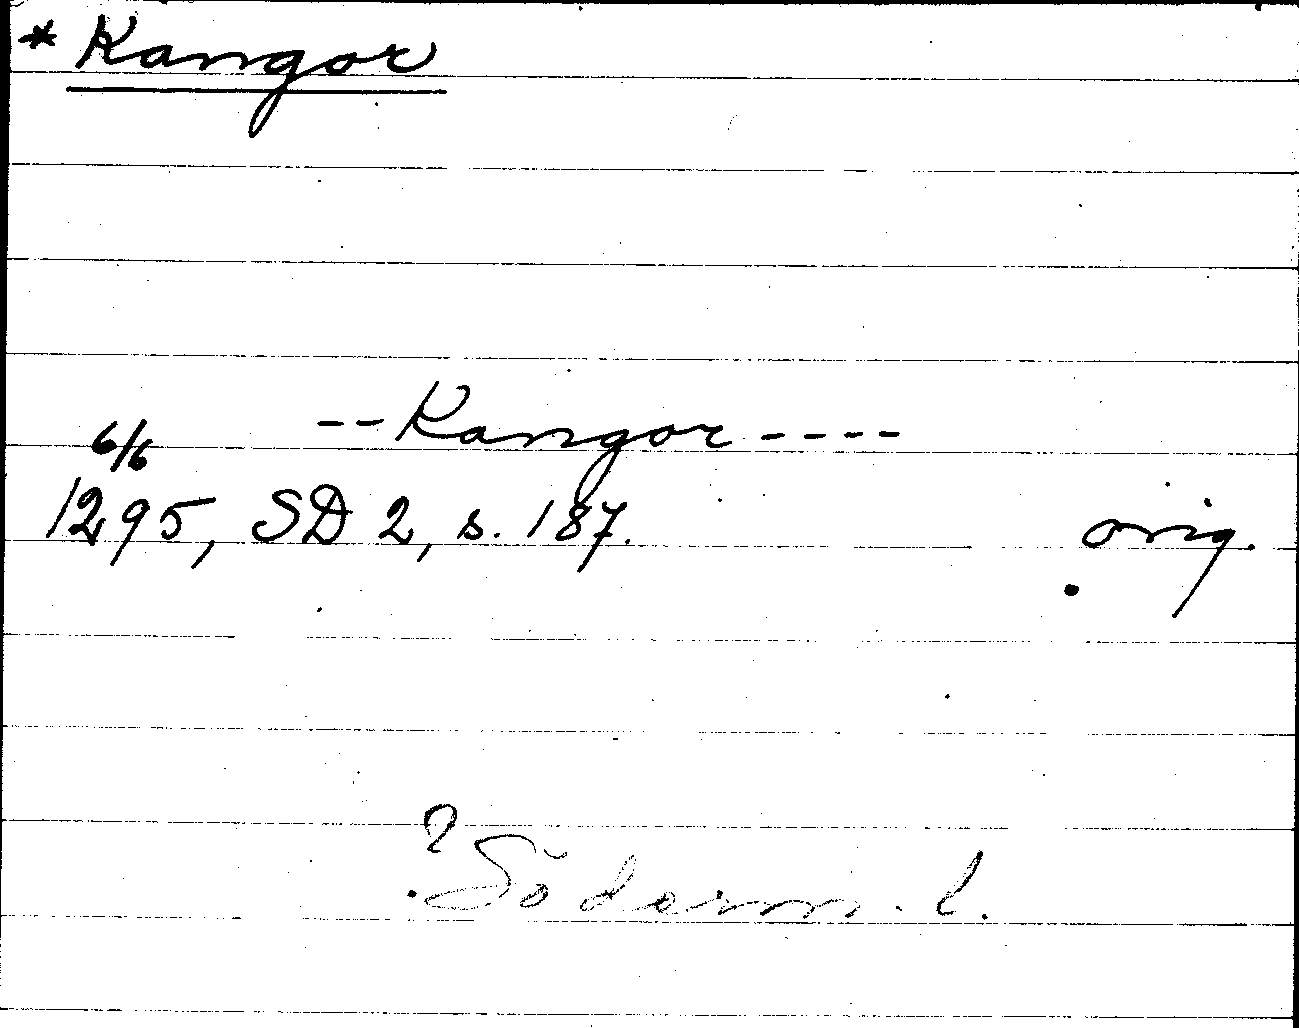 * Kangor
-- Kangor ----
6/6
1295, SD 2, s. 187. orig.
? Söderm. l.